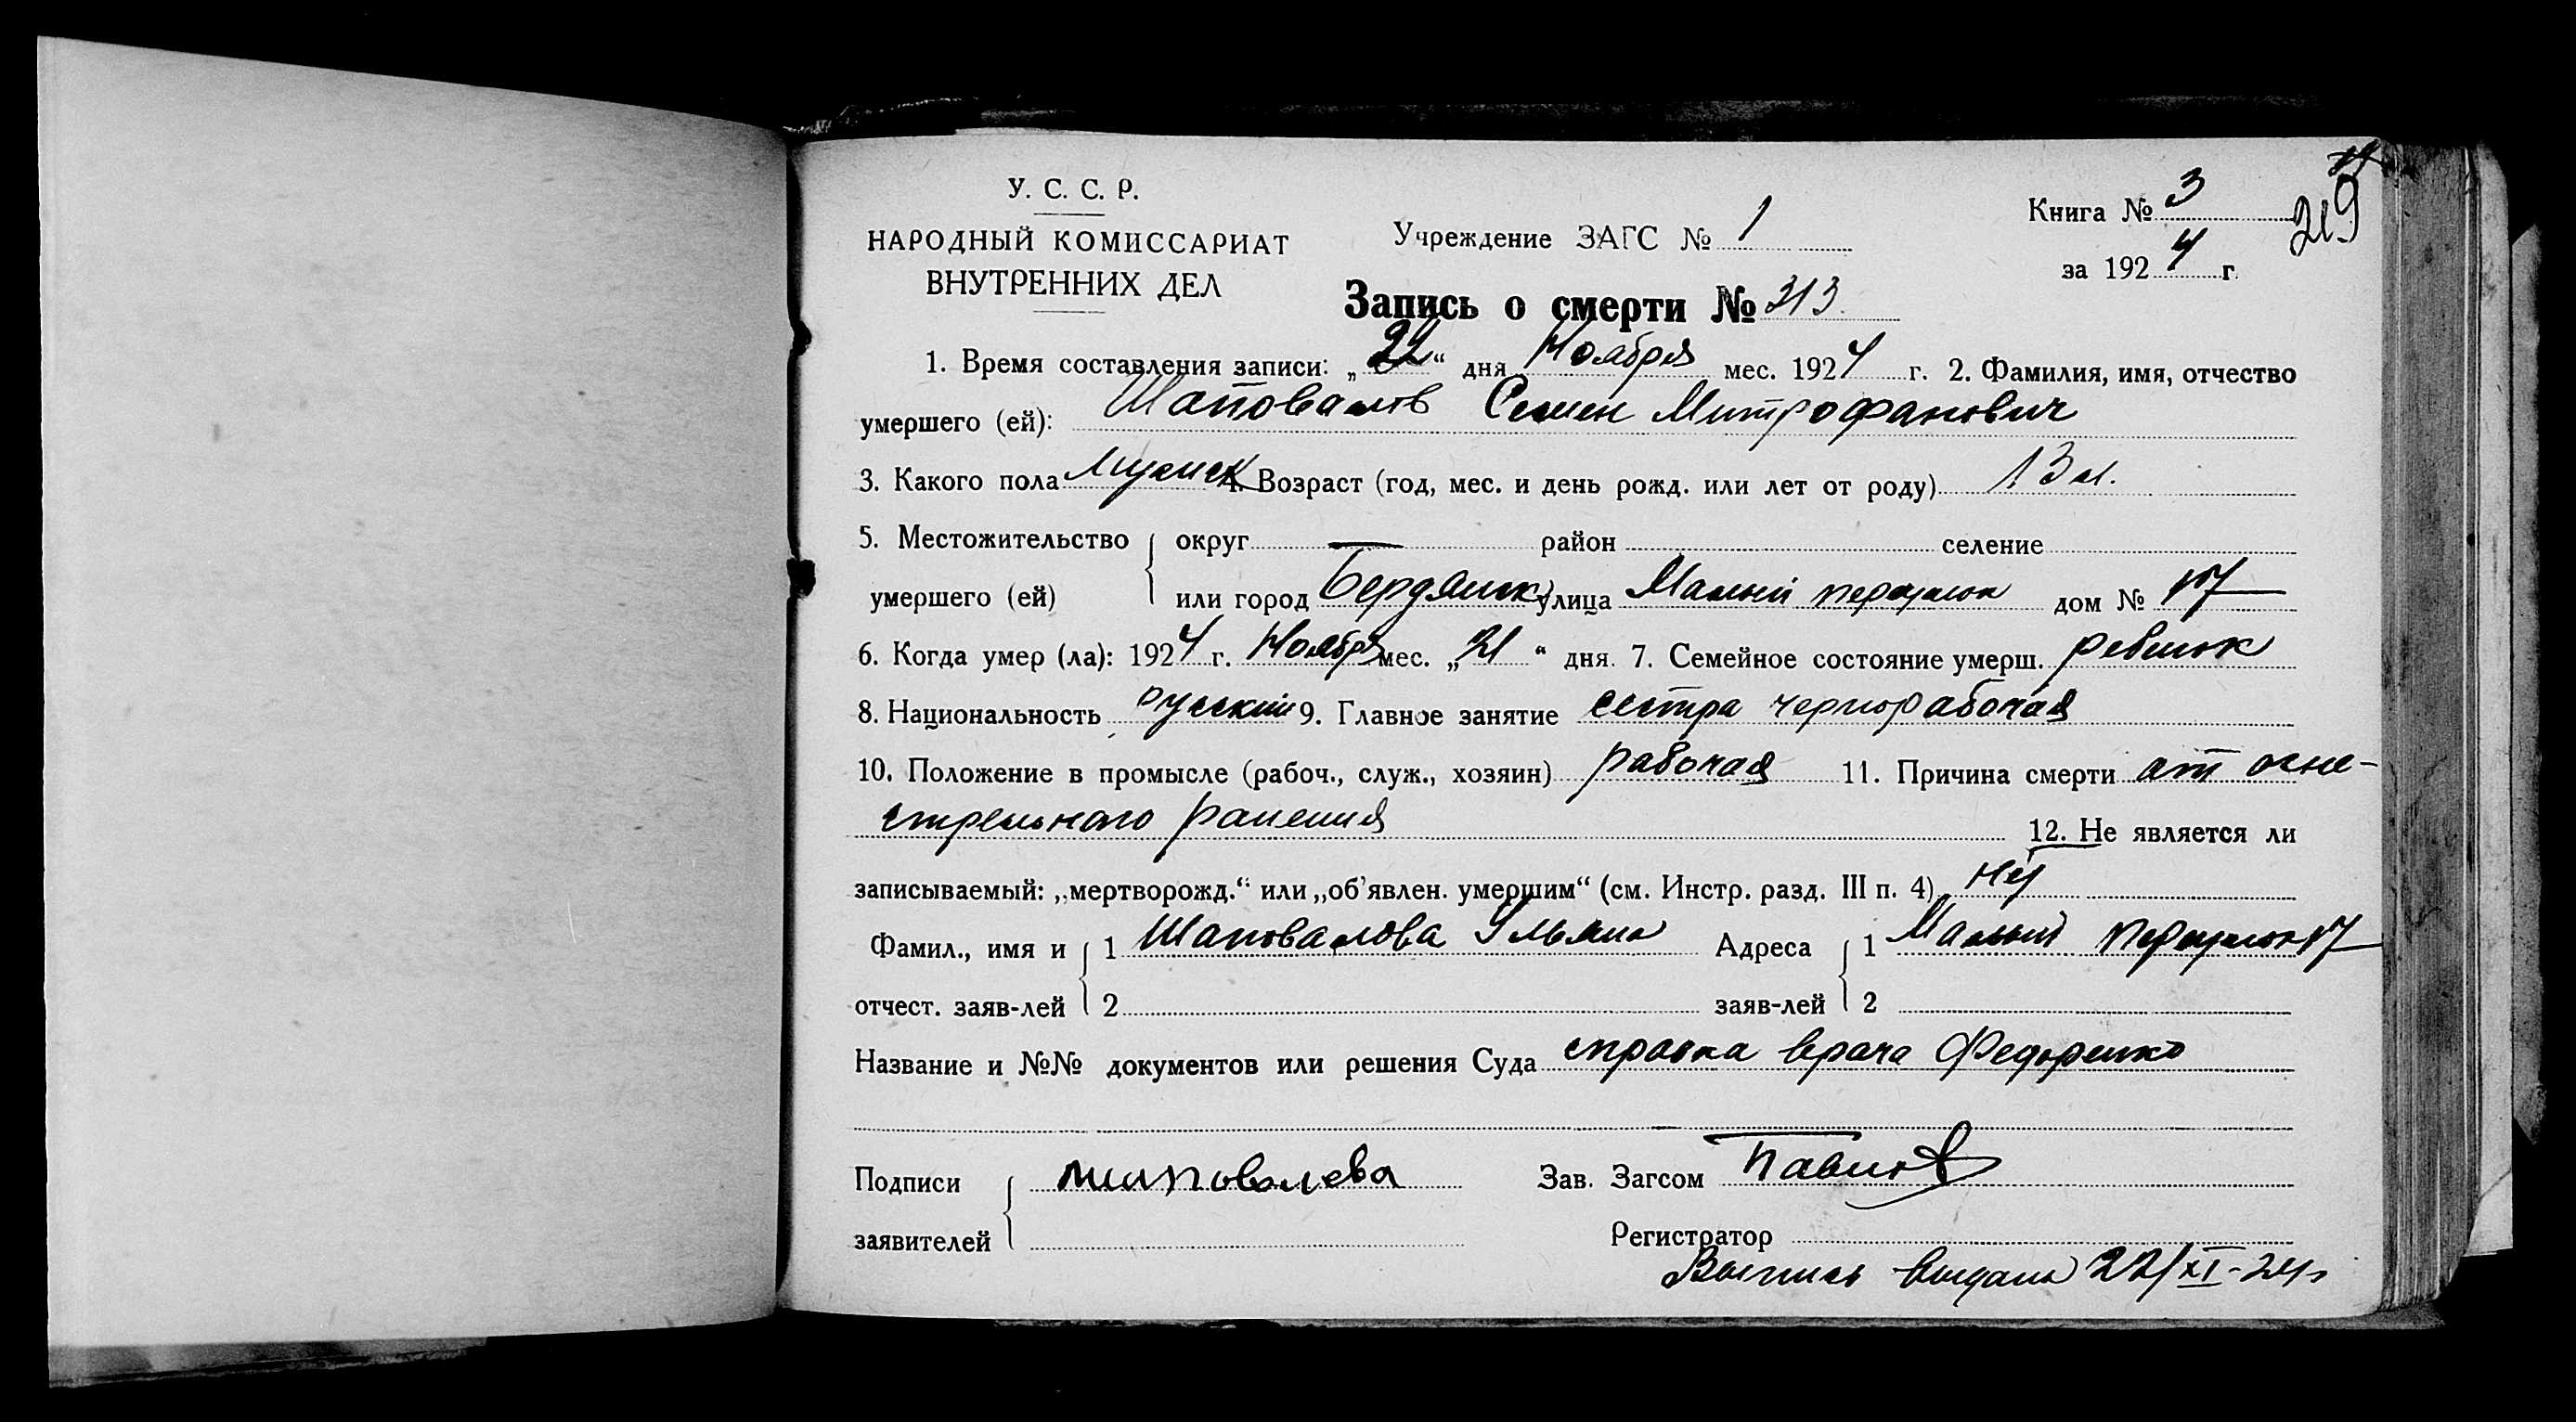 У. С. С. Р.
НАРОДНЫЙ КОМИССАРИАТ
ВНУТРЕННИХ ДЕЛ
Учреждение ЗАГС № 1
Книга № 3
219
за 1924 г.
Запись о смерти № 313.
1. Время составления записи: „22“ дня Ноября мес. 1924 г. 2. Фамилия, имя, отчество
умершего (ей): Шаповалов Семен Митрофанович
3. Какого пола мужск 4. Возраст (год, мес. и день рожд. или лет от роду) 13 л.
5. Местожительство умершего (ей) { округ район селение
или город Бердянск улица Малый переулок дом № 17
6. Когда умер (ла): 1924 г. Ноября мес. „21“ дня. 7. Семейное состояние умерш. ребенок
8. Национальность русский 9. Главное занятие сестра чернорабочая
10. Положение в промысле (рабоч., служ., хозяин) рабочая 11. Причина смерти от огне-
стрельного ранения 12. Не является ли
записываемый: „мертворожд.“ или „об’явлен. умершим“ (см. Инстр. разд. III п. 4) нет
Фамил., имя и { 1 Шаповалова Ульяна Адреса { 1 Малый переулок 17
отчест. заяв-лей 2 заяв-лей 2
Название и №№ документов или решения Суда справка врача Федоренко
Подписи { Шаповалова Зав. Загсом Павлов
заявителей Регистратор
Выпись выдана 22/XI-24г